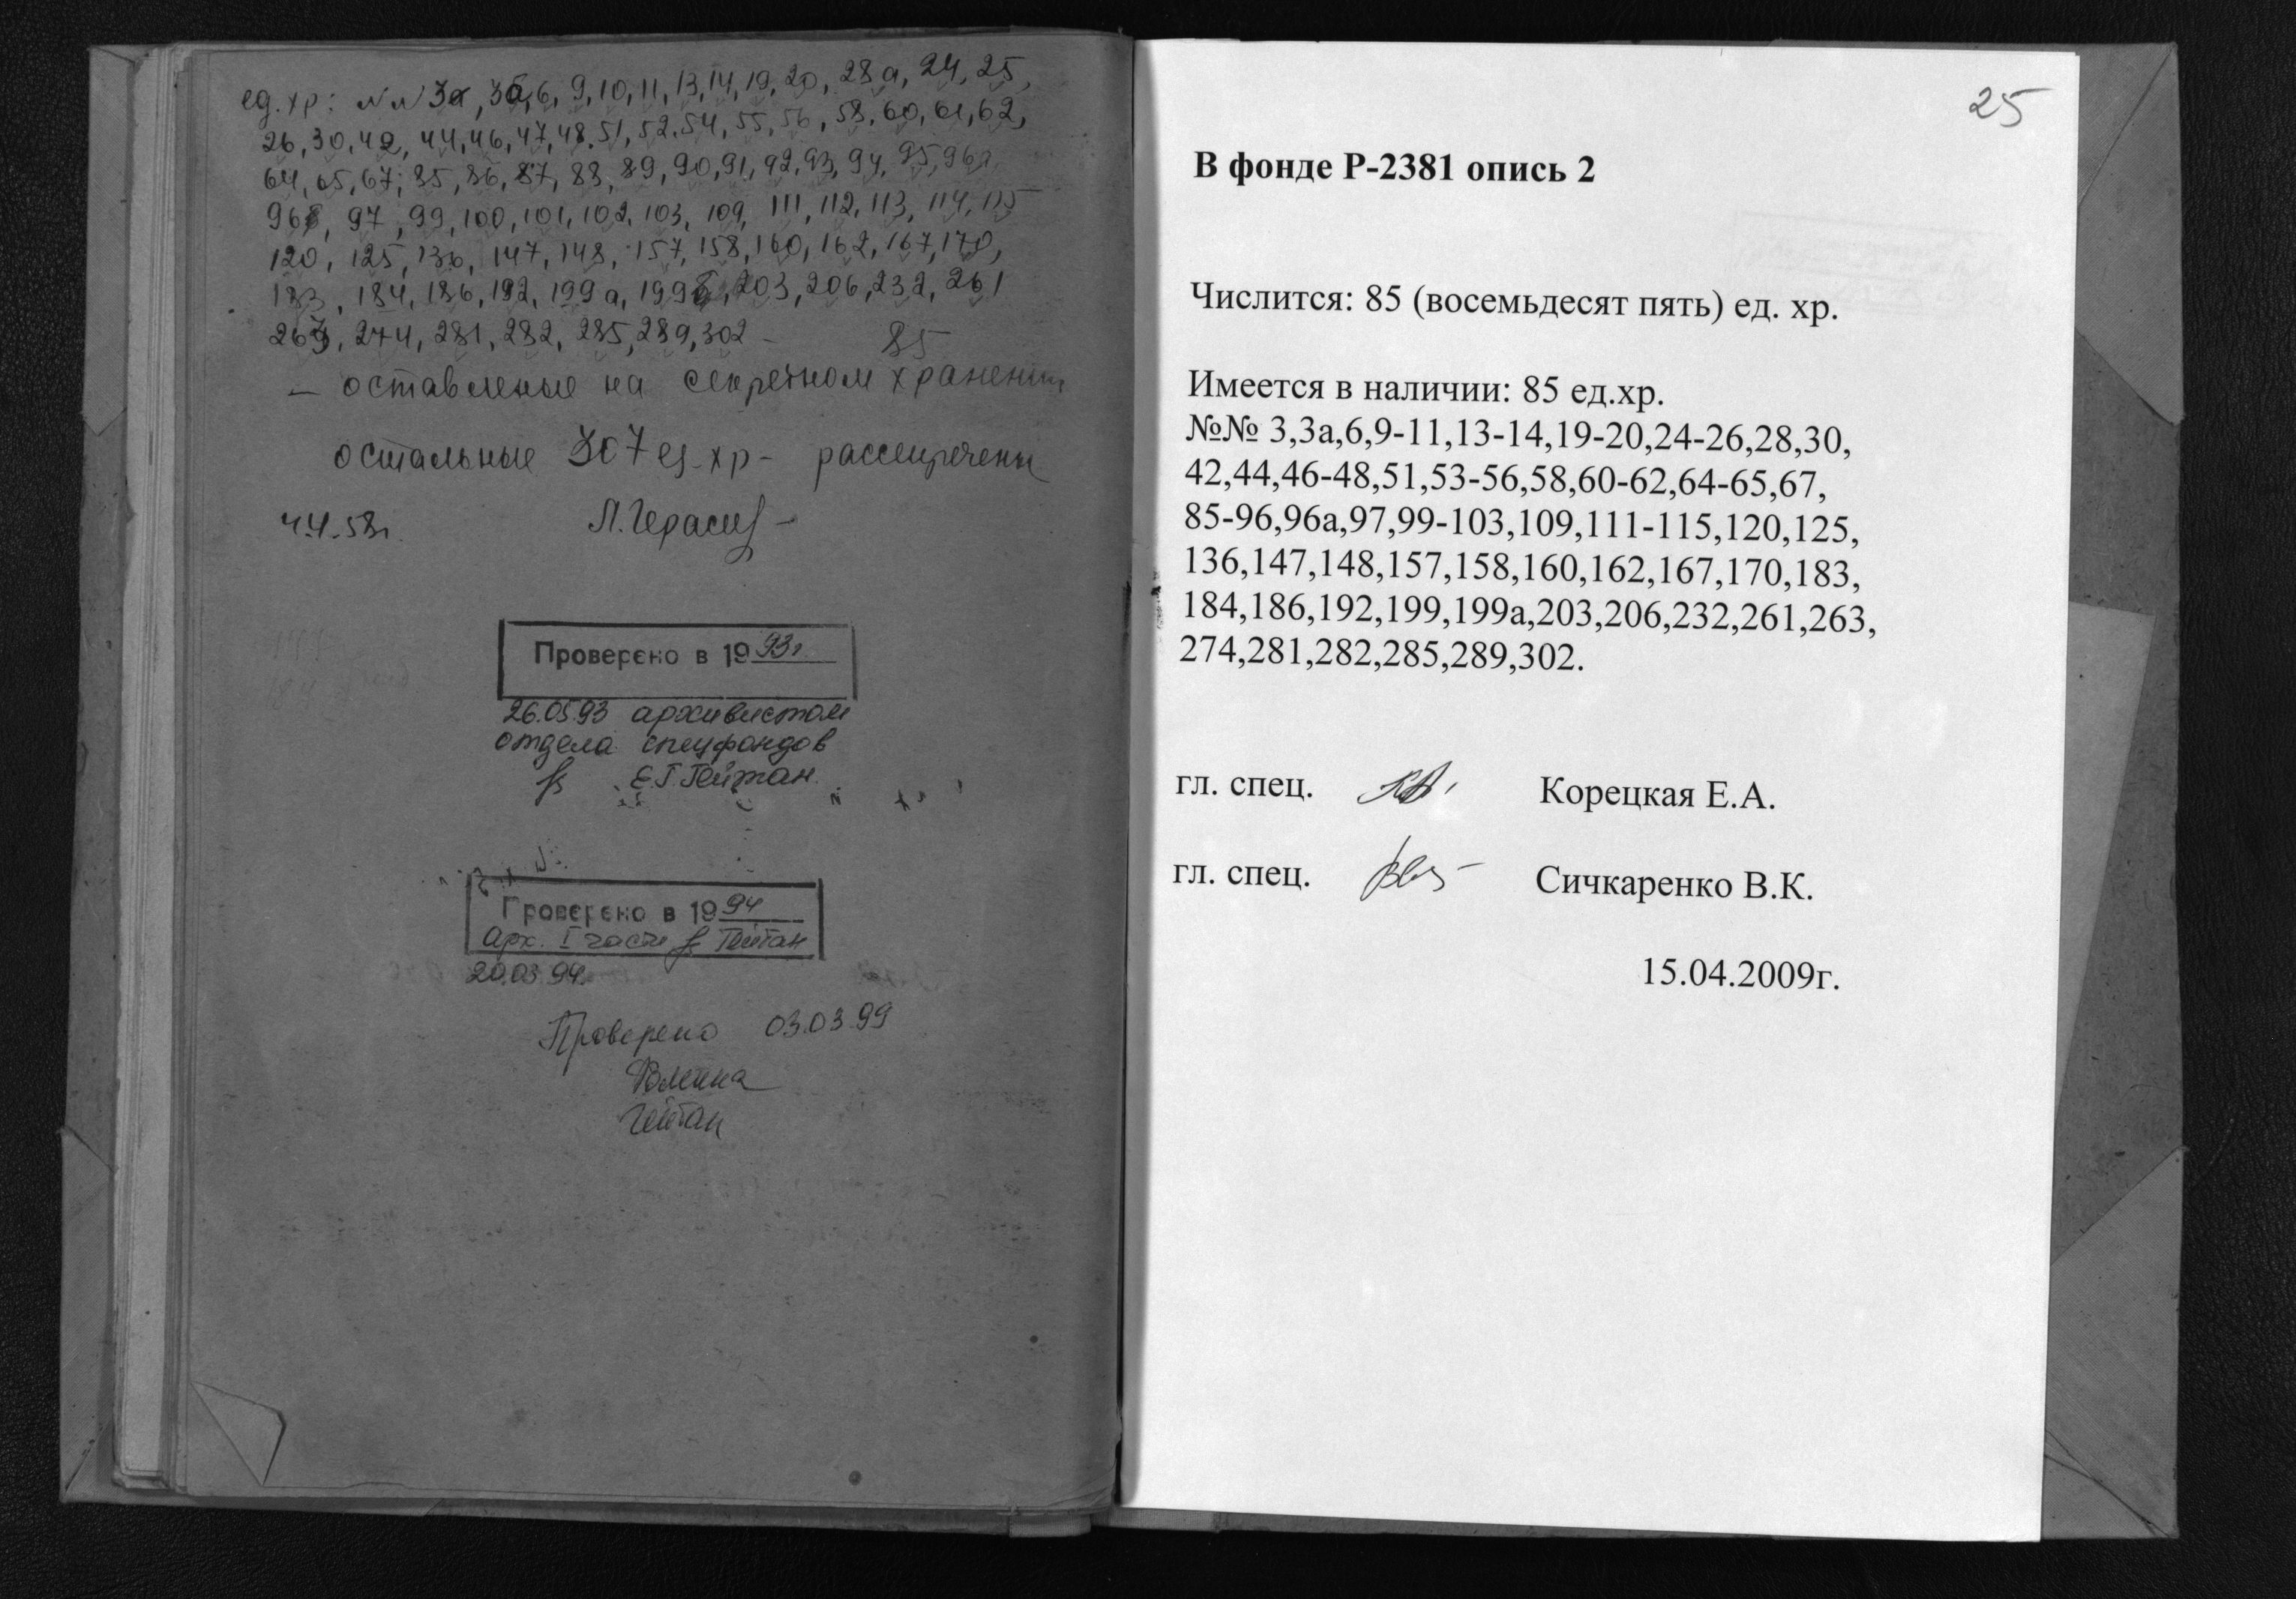 ед. хр: NN 3а, 3б, 6, 9, 10, 11, 13, 14, 19, 20, 28а, 24, 25,
26, 30, 42, 44, 46, 47, 48, 51, 52, 54, 55, 56, 58, 60, 61, 62,
64, 65, 67, 85, 86, 87, 88, 89, 90, 91, 92, 93, 94, 95, 96а,
96б, 97, 99, 100, 101, 102, 103, 109, 111, 112, 113, 114, 115
120, 125, 136, 147, 148, 157, 158, 160, 162, 167, 170,
183, 184, 186, 192, 199а, 199б, 203, 206, 232, 261
263, 274, 281, 282, 285, 289, 302 –
85
– оставленые на секретном хранении
остальные 307 ед. хр – рассекречены
4.4.58г.
Проверено в 1993г.
26.05.93 архивистом
отдела спецфондов
Е.Г. Гейтан
Проверено в 1994
Арх. I части Гейтан
20.03.94.
Проверено 03.03.99
Гейтан
25
В фонде Р-2381 опись 2
Числится: 85 (восемьдесят пять) ед. хр.
Имеется в наличии: 85 ед.хр.
№№ 3,3а,6,9-11,13-14,19-20,24-26,28,30,
42,44,46-48,51,53-56,58,60-62,64-65,67,
85-96,96а,97,99-103,109,111-115,120,125,
136,147,148,157,158,160,162,167,170,183,
184,186,192,199,199а,203,206,232,261,263,
274,281,282,285,289,302.
гл. спец. Корецкая Е.А.
гл. спец. Сичкаренко В.К.
15.04.2009г.